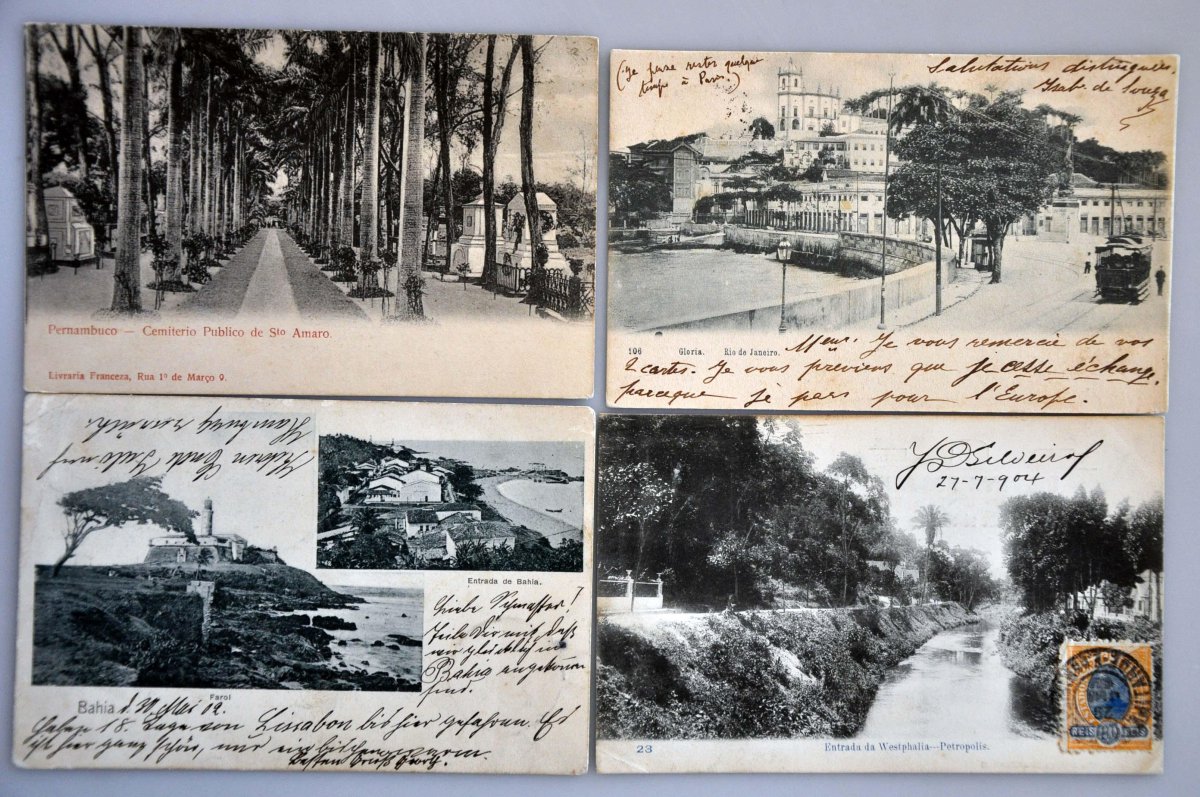 Pernambuco — Cemiterio Publico de Sto Amaro.
Livraria Franceza, Rua 1º de Março 9.
(Je pense rester quelque
temps à Paris.)
Salutations distinguées,
de Souza
106 Gloria. Rio de Janeiro.
Meur. Je vous remercie de vos
2 cartes. Je vous previens que je cesse échange,
parceque je pars pour l'Europe.
Hamburg
Entrada de Bahia.
Liebe
Teile Dir mit daß
wir glücklich in
Bahia angekommen
sind.
Farol
Bahia d. Mai 02.
Haben 18 Tage von Lissabon bis hier gefahren. Es
ist hier ganz schön, nur ein bischen warm.
Besten Gruß
Silveira
27-7-904
REIS
23 Entrada da Westphalia—Petropolis.